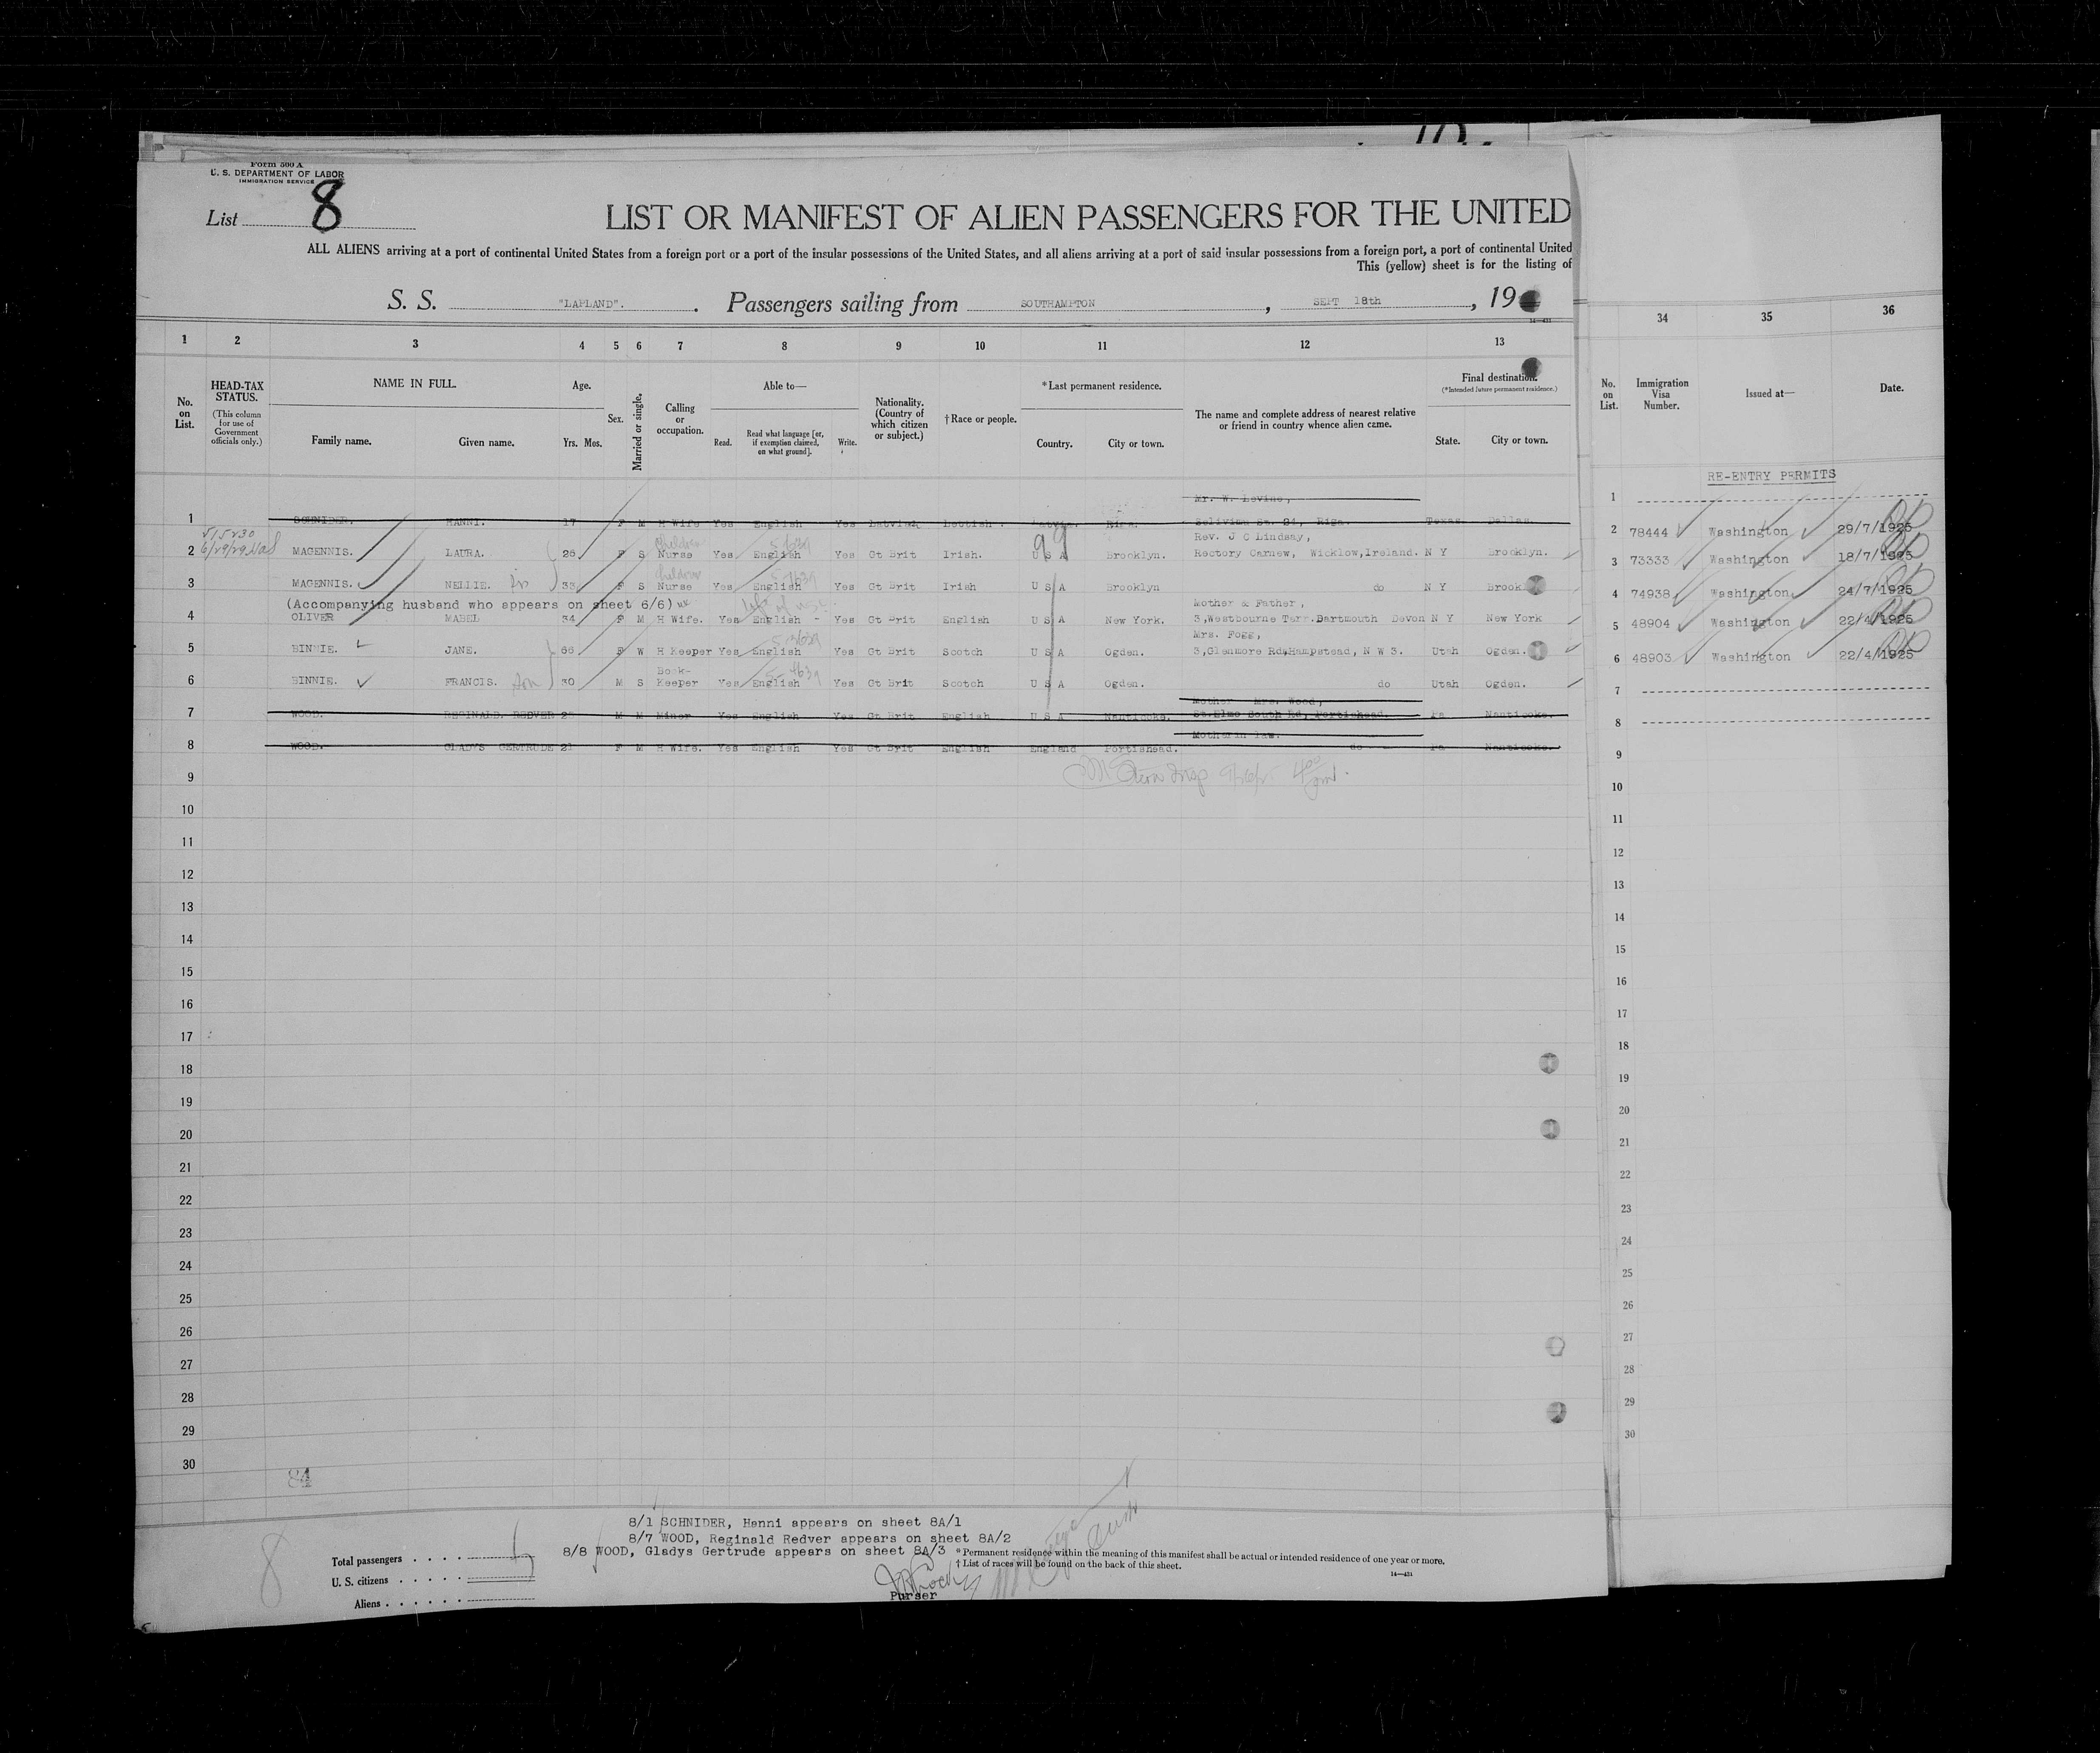 Form 500 A
U. S. DEPARTMENT OF LABOR
IMMIGRATION SERVICE
List 8
LIST OR MANIFEST OF ALIEN PASSENGERS FOR THE UNITED
ALL ALIENS arriving at a port of continental United States from a foreign port or a port of the insular possessions of the United States, and all aliens arriving at a port of said insular possessions from a foreign port, a port of continental United
This (yellow) sheet is for the listing of
S. S. "LAPLAND". Passengers sailing from SOUTHAMPTON, SEPT 18th, 19
1 2 3 4 5 6 7 8 9 10 11 12 13 34 35 36
No. on List.
HEAD-TAX STATUS.
(This column for use of Government officials only.)
NAME IN FULL.
Family name. Given name.
Age.
Yrs. Mos.
Sex.
Married or single.
Calling or occupation.
Able to—
Read. Read what language [or, if exemption claimed, on what ground]. Write.
Nationality. (Country of which citizen or subject.)
†Race or people.
*Last permanent residence.
Country. City or town.
The name and complete address of nearest relative or friend in country whence alien came.
Final destination.
(*Intended future permanent residence.)
State. City or town.
No. on List.
Immigration Visa Number.
Issued at—
Date.
RE-ENTRY PERMITS
Mr. W. Levine,
1 SCHNIDER. HANNI. 17 F M H Wife Yes English Yes Latvian Lettish. Latvia. Riga. Riga. Texas. Dallas.
Rev. J C Lindsay,
2 MAGENNIS. LAURA. 26 F S Nurse Yes English Yes Gt Brit Irish. U S A Brooklyn. Rectory Carnew, Wicklow,Ireland. N Y Brooklyn.
3 MAGENNIS. NELLIE. 33 F S Nurse Yes English Yes Gt Brit Irish U S A Brooklyn do N Y Brook
(Accompanying husband who appears on sheet 6/6)
Mother & Father,
4 OLIVER MABEL 34 F M H Wife. Yes English - Yes Gt Brit English U S A New York. 3,Westbourne Terr.Dartmouth Devon N Y New York
Mrs. Fogg,
5 BINNIE. JANE. 66 F W H Keeper Yes English Yes Gt Brit Scotch U S A Ogden. 3,Glenmore Rd,Hampstead, N W 3. Utah Ogden.
Book-
6 BINNIE. FRANCIS. 30 M S Keeper Yes English Yes Gt Brit Scotch U S A Ogden. do Utah Ogden.
Mother Mrs. Wood,
7 WOOD. REGINALD. REDVER M M Miner Yes English Yes Gt Brit English U S A Nanticoke. St.Elmo South Rd, Portishead. Pa Nanticoke.
Mother in law.
8 WOOD. GLADYS GERTRUDE 21 F M H Wife. Yes English Yes Gt Brit English England Portishead. do Pa Nanticoke.
9
10
11
12
13
14
15
16
17
18
19
20
21
22
23
24
25
26
27
28
29
30
1
2 78444 Washington 29/7/1925
3 73333 Washington 18/7/1925
4 74938 Washington 24/7/1925
5 48904 Washington 22/4/1925
6 48903 Washington 22/4/1925
7
8
9
10
11
12
13
14
15
16
17
18
19
20
21
22
23
24
25
26
27
28
29
30
84
8/1 SCHNIDER, Henni appears on sheet 8A/1
8/7 WOOD, Reginald Redver appears on sheet 8A/2
8/8 WOOD, Gladys Gertrude appears on sheet 8A/3
8
Total passengers
U. S. citizens
Aliens
*Permanent residence within the meaning of this manifest shall be actual or intended residence of one year or more.
†List of races will be found on the back of this sheet.
14—431
Purser